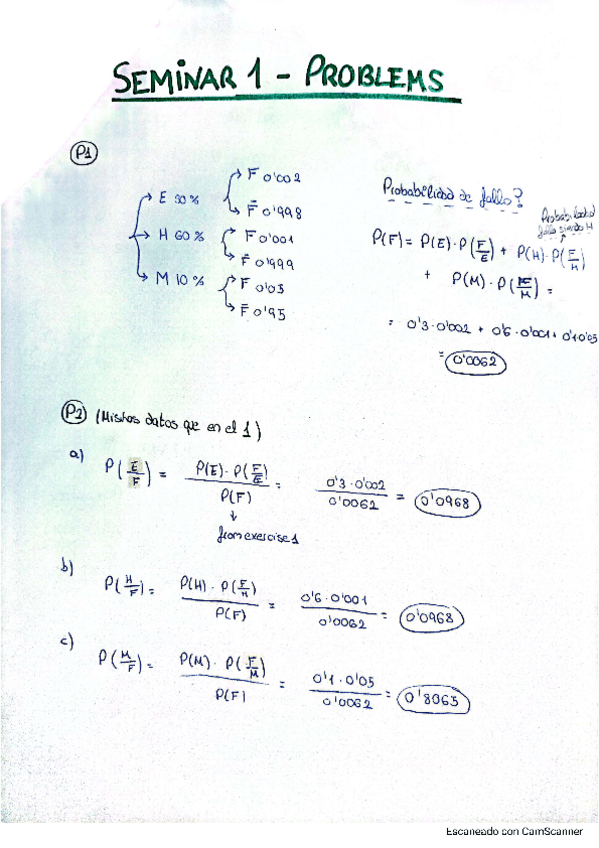 SEMINAR 1 - PROBLEMS
P1
E 30 %
F 0'002
F̄ 0'998
H 60 %
F 0'001
F̄ 0'999
M 10 %
F 0'05
F̄ 0'95
Probabilidad de fallo?
Probabilidad
fallo siendo H
P(F) = P(E) · P(F/E) + P(H) · P(F/H)
+ P(M) · P(F/M) =
= 0'3 · 0'002 + 0'6 · 0'001 + 0'1 0'05
= 0'0062
P2 (Mismos datos que en el 1)
a) P(E/F) = P(E) · P(F/E) / P(F) = 0'3 · 0'002 / 0'0062 = 0'0968
↓
from exercise 1
b) P(H/F) = P(H) · P(F/H) / P(F) = 0'6 · 0'001 / 0'0062 = 0'0968
c) P(M/F) = P(M) · P(F/M) / P(F) = 0'1 · 0'05 / 0'0062 = 0'8065
Escaneado con CamScanner